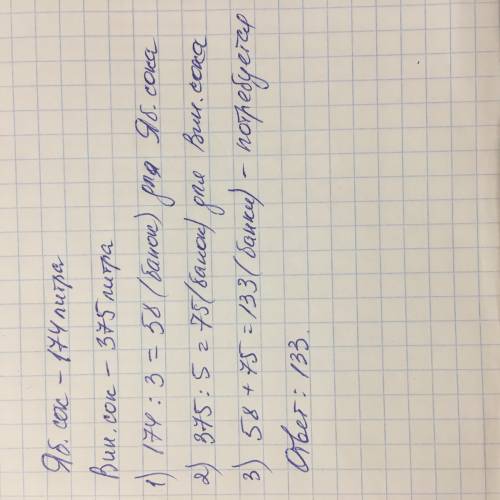 Яб. сок – 174 литра
Вин. сок – 375 литра
1) 174 : 3 = 58 (банок) для Яб. сока
2) 375 : 5 = 75 (банок) для Вин. сока
3) 58 + 75 = 133 (банки) – потребуется
Ответ: 133.